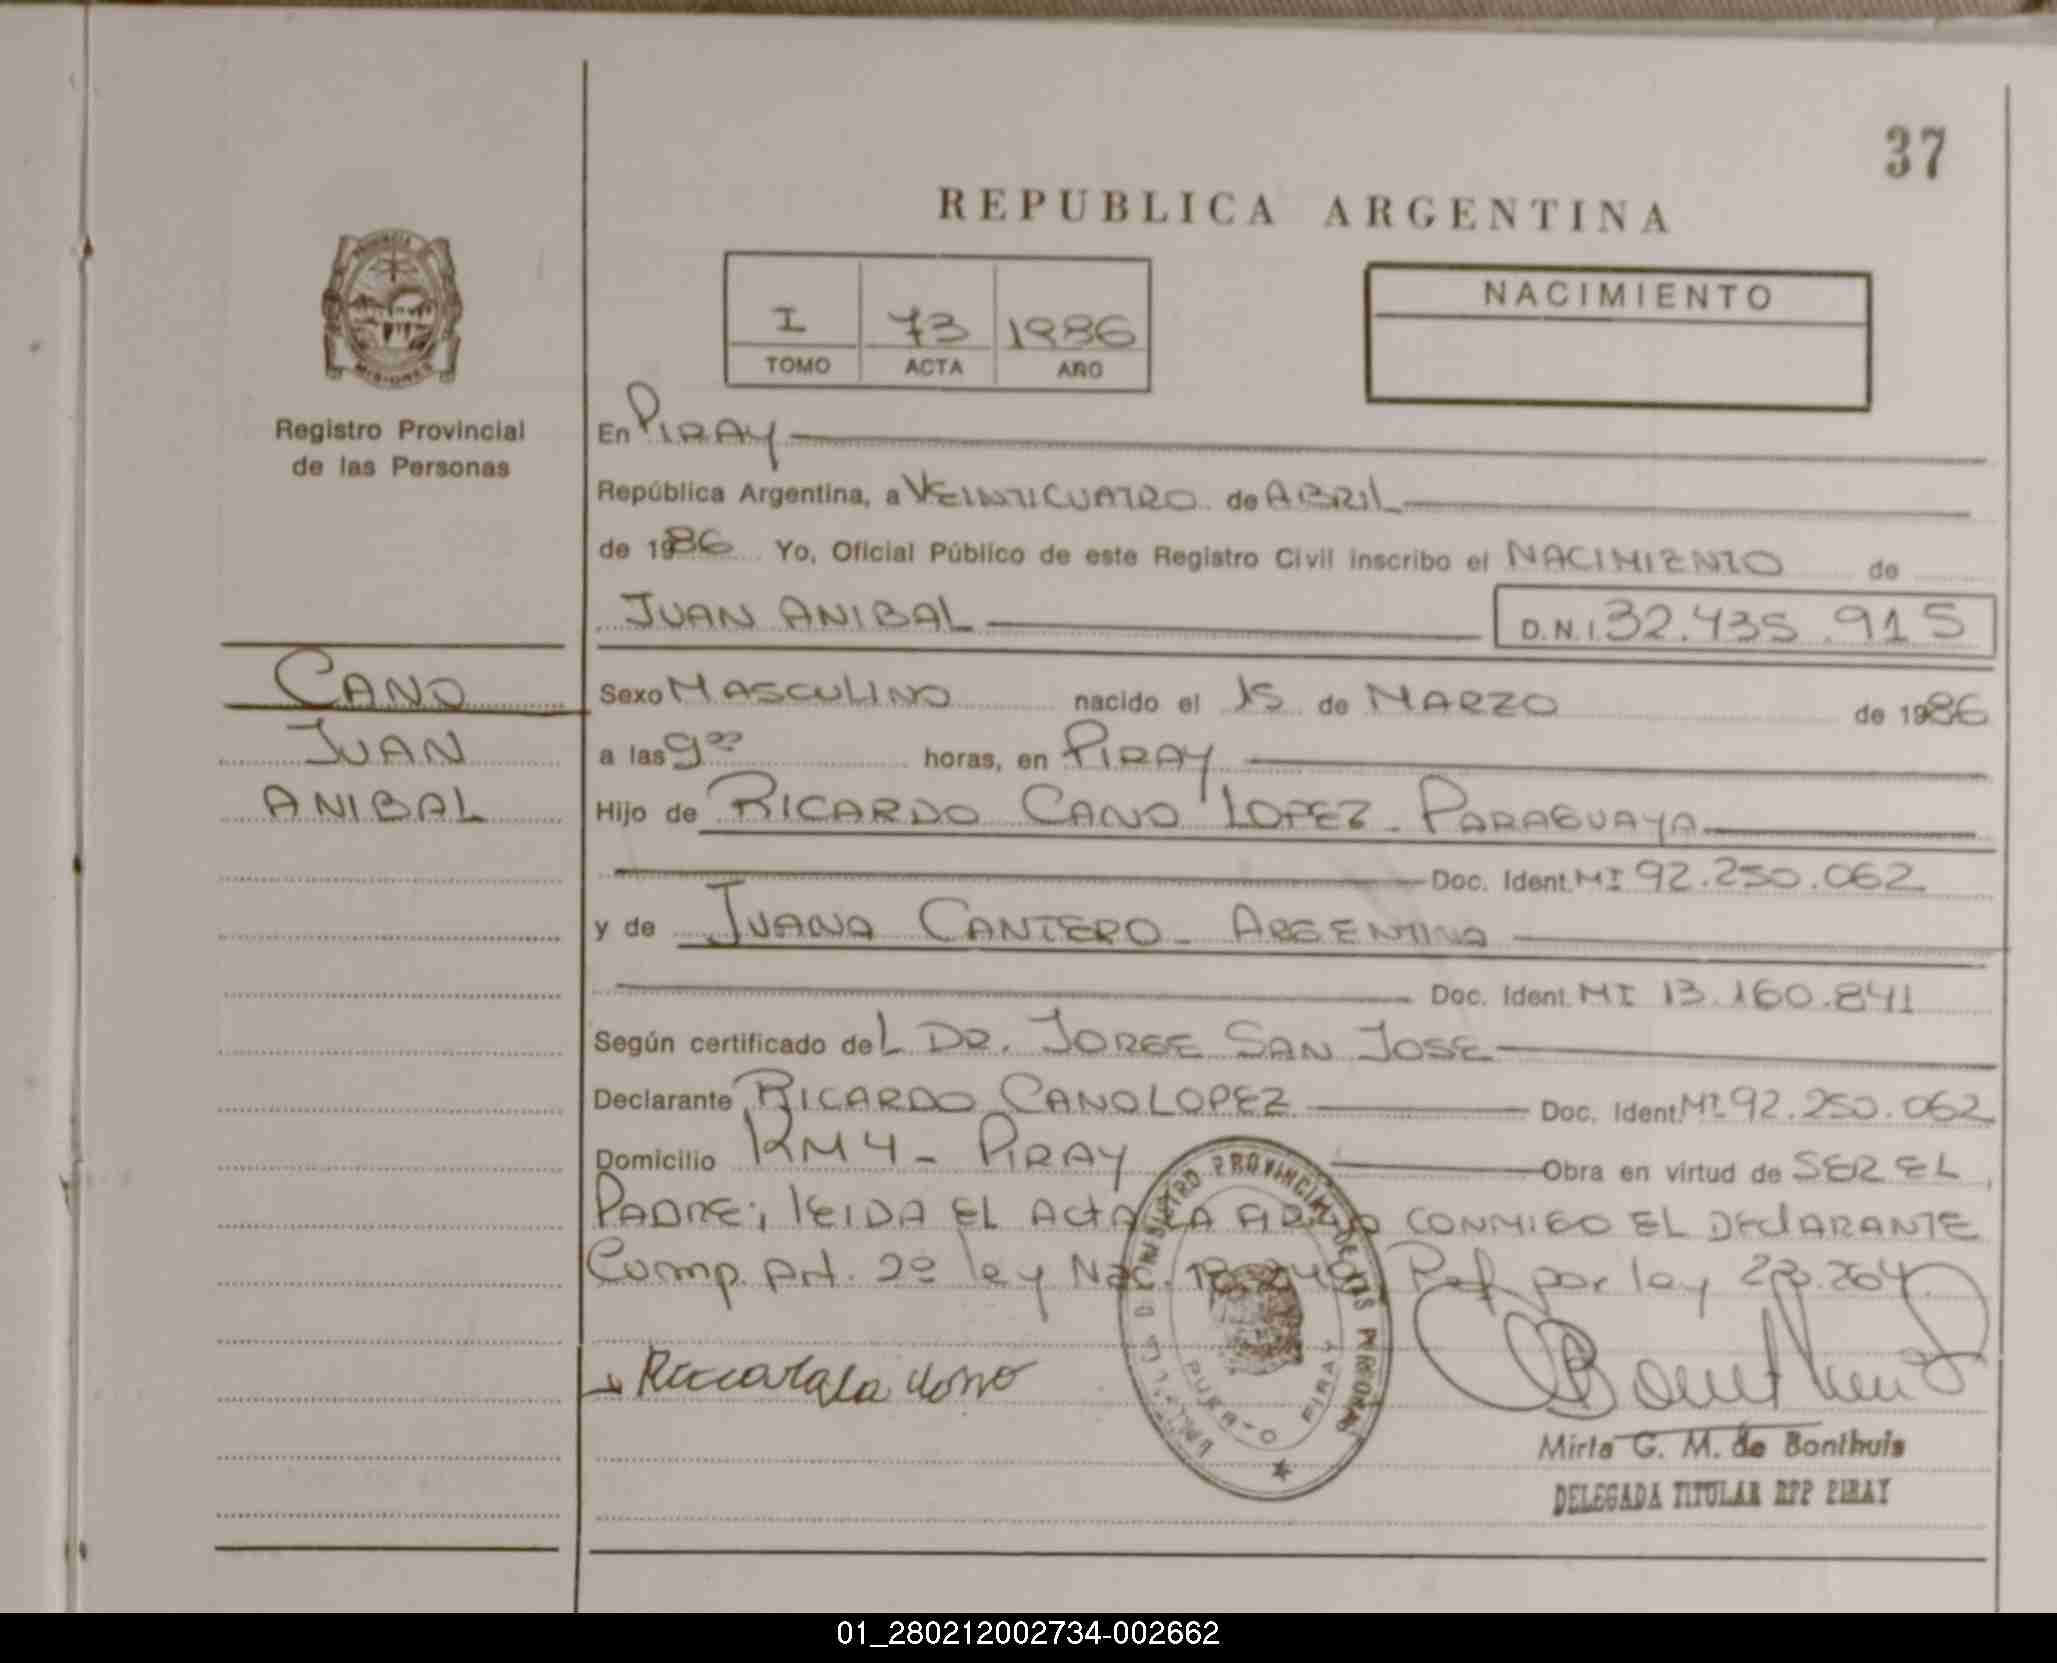 37
REPUBLICA ARGENTINA
I 73 1986
TOMO ACTA AÑO
NACIMIENTO
PROVINCIA
MISIONES
Registro Provincial
de las Personas
CANO
JUAN
ANIBAL
En PIRAY
República Argentina, a VEINTICUATRO de ABRIL
de 1986 Yo, Oficial Público de este Registro Civil inscribo el NACIMIENTO de
JUAN ANIBAL D.N.I. 32.435.915
Sexo MASCULINO nacido el 15 de MARZO de 1986
a las 9 horas, en PIRAY
Hijo de RICARDO CANO LOPEZ - PARAGUAYA
Doc. Ident. MI 92.250.062
y de JUANA CANTERO - ARGENTINA
Doc. Ident. MI 13.160.841
Según certificado del DR. JORGE SAN JOSE
Declarante RICARDO CANO LOPEZ Doc. Ident. MI 92.250.062
Domicilio KM 4 - PIRAY Obra en virtud de SER EL
PADRE; lEIDA EL ActA LA FIRMA CONMIGO EL DEClARANTE
Comp. Art. 2º ley Nac. Ref por ley
REGISTRO PROVINCIAL DE LAS PERSONAS
PUERTO PIRAY
Mirta G. M. de Bonthuis
DELEGADA TITULAR RPP PIRAY
01_280212002734-002662